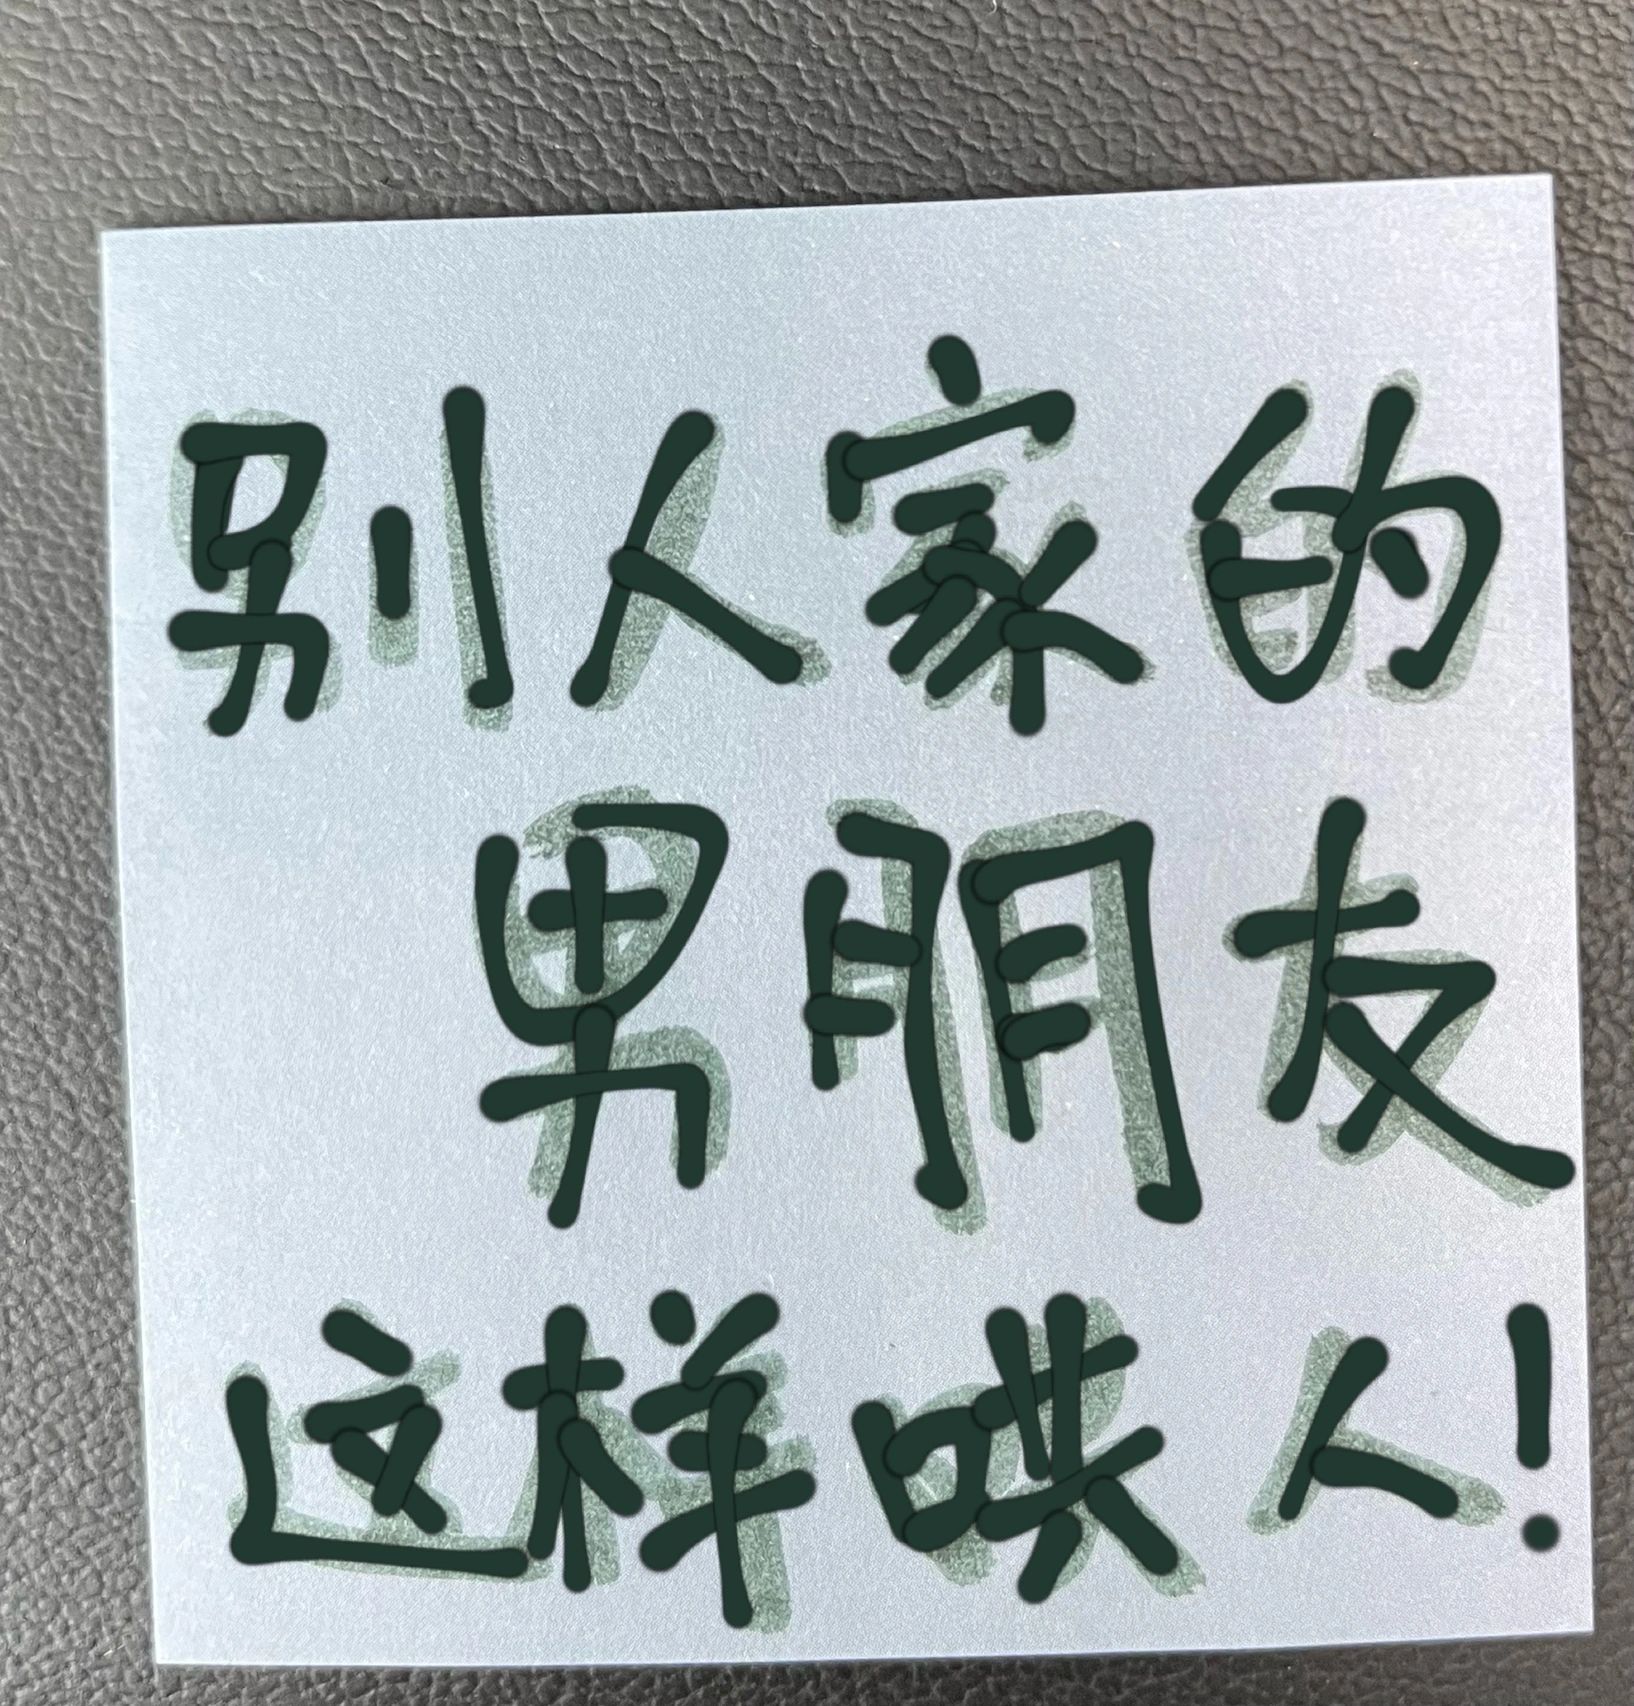 别人家的
男朋友
这样哄人!